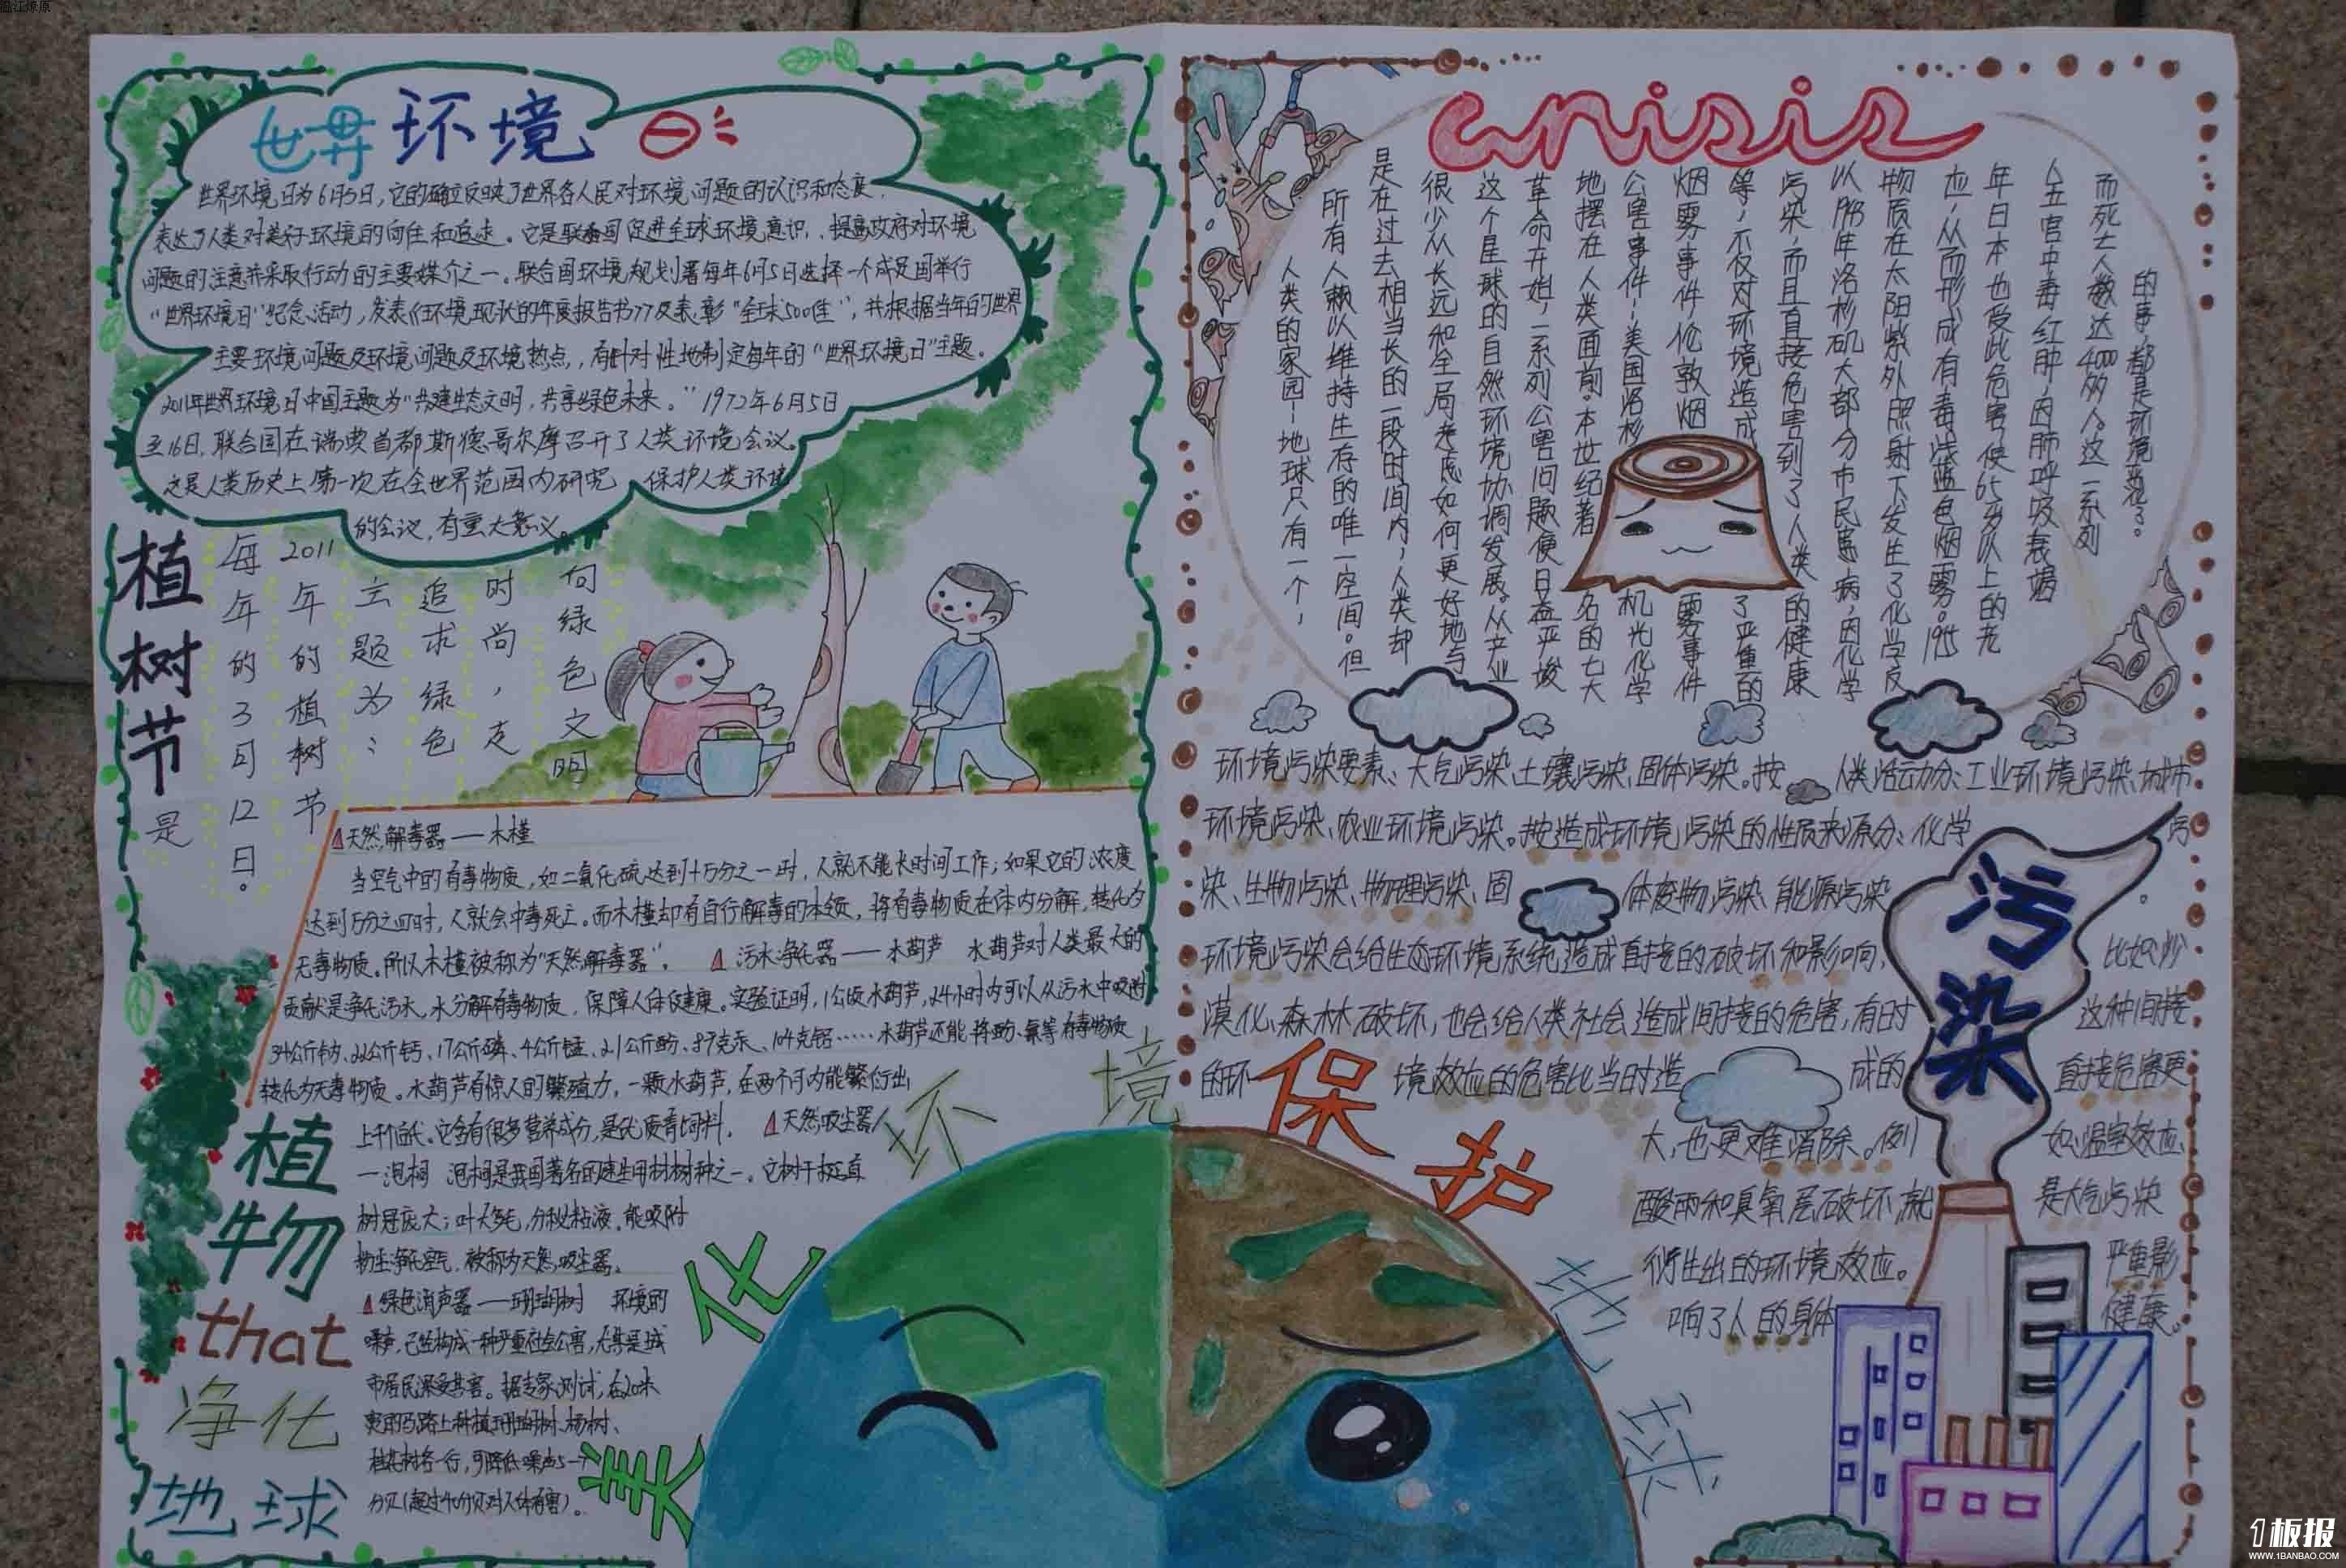 世界环境日
世界环境日为6月5日，它的确立反映了世界各人民对环境问题的认识和态度，
表达了人类对美好环境的向往和追求。它是联合国促进全球环境意识、提高政府对环境
问题的注意并采取行动的主要媒介之一。联合国环境规划署每年6月5日选择一个成员国举行
“世界环境日”纪念活动，发表《环境现状的年度报告书》及表彰“全球500佳”，并根据当年的世界
主要环境问题及环境问题及环境热点，有针对性地制定每年的“世界环境日”主题。
2011年世界环境日中国主题为“共建生态文明，共享绿色未来。”1972年6月5日
至16日，联合国在瑞典首都斯德哥尔摩召开了人类环境会议。
这是人类历史上第一次在全世界范围内研究 保护人类环境
的会议，有重大意义。
植树节是
每年的3月12日。
2011年的植树节
主题为：
追求绿色
时尚，走
向绿色文明
天然解毒器——木槿
当空气中的有毒物质，如二氧化硫达到十万分之一时，人就不能长时间工作；如果它的浓度
达到万分之四时，人就会中毒死亡。而木槿却有自行解毒的本领，将有毒物质在体内分解，转化为
无毒物质。所以木槿被称为“天然解毒器”。 污水净化器——水葫芦 水葫芦对人类最大的
贡献是净化污水，水分解有毒物质，保障人体健康。实验证明，1公顷水葫芦，24小时内可以从污水中吸附
34公斤钠、22公斤钙、17公斤磷、4公斤锰、2.1公斤酚、89克汞、104克铝……水葫芦还能将酚、氰等有毒物质
转化为无毒物质。水葫芦有惊人的繁殖力，一颗水葫芦，在两个月内能繁衍出
上千后代。它含有很多营养成分，是优质青饲料。 天然吸尘器
——泡桐 泡桐是我国著名的速生用材树种之一。它树干挺直
树冠庞大；叶大多毛，分秘粘液，能吸附
粉尘净化空气，被称为天然吸尘器。
绿色消声器——珊瑚树 环境的
噪声，已经构成一种严重社会公害，尤其是城
市居民深受其害。据专家测试，在20米
宽的马路上种植珊瑚树、杨树、
桂花树各一行，可降低噪声5—7
分贝（超过40分贝对人体有害）。
植物
that
净化
地球
美化环境
保护地球
crisis
人类的家园—地球只有一个，
所有人赖以维持生存的唯一空间。但
是在过去相当长的一段时间内，人类却
很少从长远和全局考虑如何更好地与
这个星球的自然环境协调发展。从产业
革命开始，一系列公害问题便日益严峻
地摆在人类面前。本世纪著名的七大
公害事件—美国洛杉机光化学
烟雾事件伦敦烟雾事件
等，不仅对环境造成了严重的
污染，而且直接危害到了人类的健康
以1943年洛杉矶大部分市民患病，因化学
物质在太阳紫外照射下发生了化学反
应，从而形成有毒浅蓝色烟雾。1955
年日本也受此危害使65岁以上的老
人五官中毒红肿，因肺呼吸衰竭
而死亡人数达4000多人。这一系列
的事，都是环境恶化了。
环境污染要素、大气污染、土壤污染、固体污染。按人类活动分：工业环境污染、城市
环境污染、农业环境污染。按造成环境污染的性质来源分：化学污
染、生物污染、物理污染、固体废物污染、能源污染。
环境污染会给生态环境系统造成直接的破坏和影响，比如沙
漠化、森林破坏，也会给人类社会造成间接的危害，有时这种间接
的环境效应的危害比当时造成的直接危害更
大，也更难消除。例如温室效应、
酸雨和臭氧层破坏，就是大气污染
衍生出的环境效应。严重影
响了人的身体健康。
污染
1板报
WWW.1BANBAO.COM